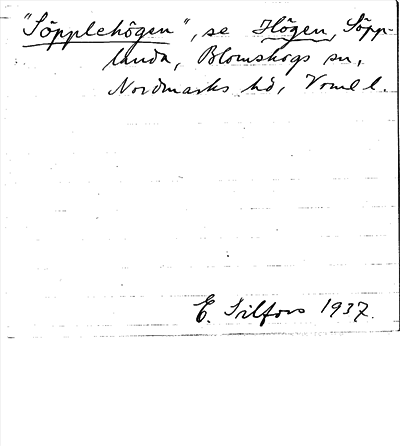 "Söpplehögen", se Högen, Söpp-
landa, Blomskogs sn,
Nordmarks hd, Vrml l.
E. Silfors 1937.